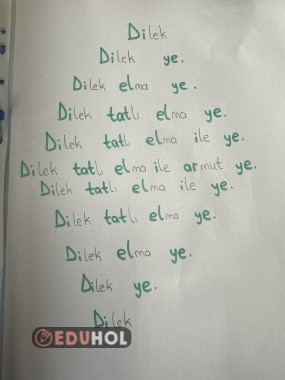 Dilek
Dilek ye.
Dilek elma ye.
Dilek tatlı elma ye.
Dilek tatlı elma ile ye.
Dilek tatlı elma ile armut ye.
Dilek tatlı elma ile ye.
Dilek tatlı elma ye.
Dilek elma ye.
Dilek ye.
Dilek
EDUHOL